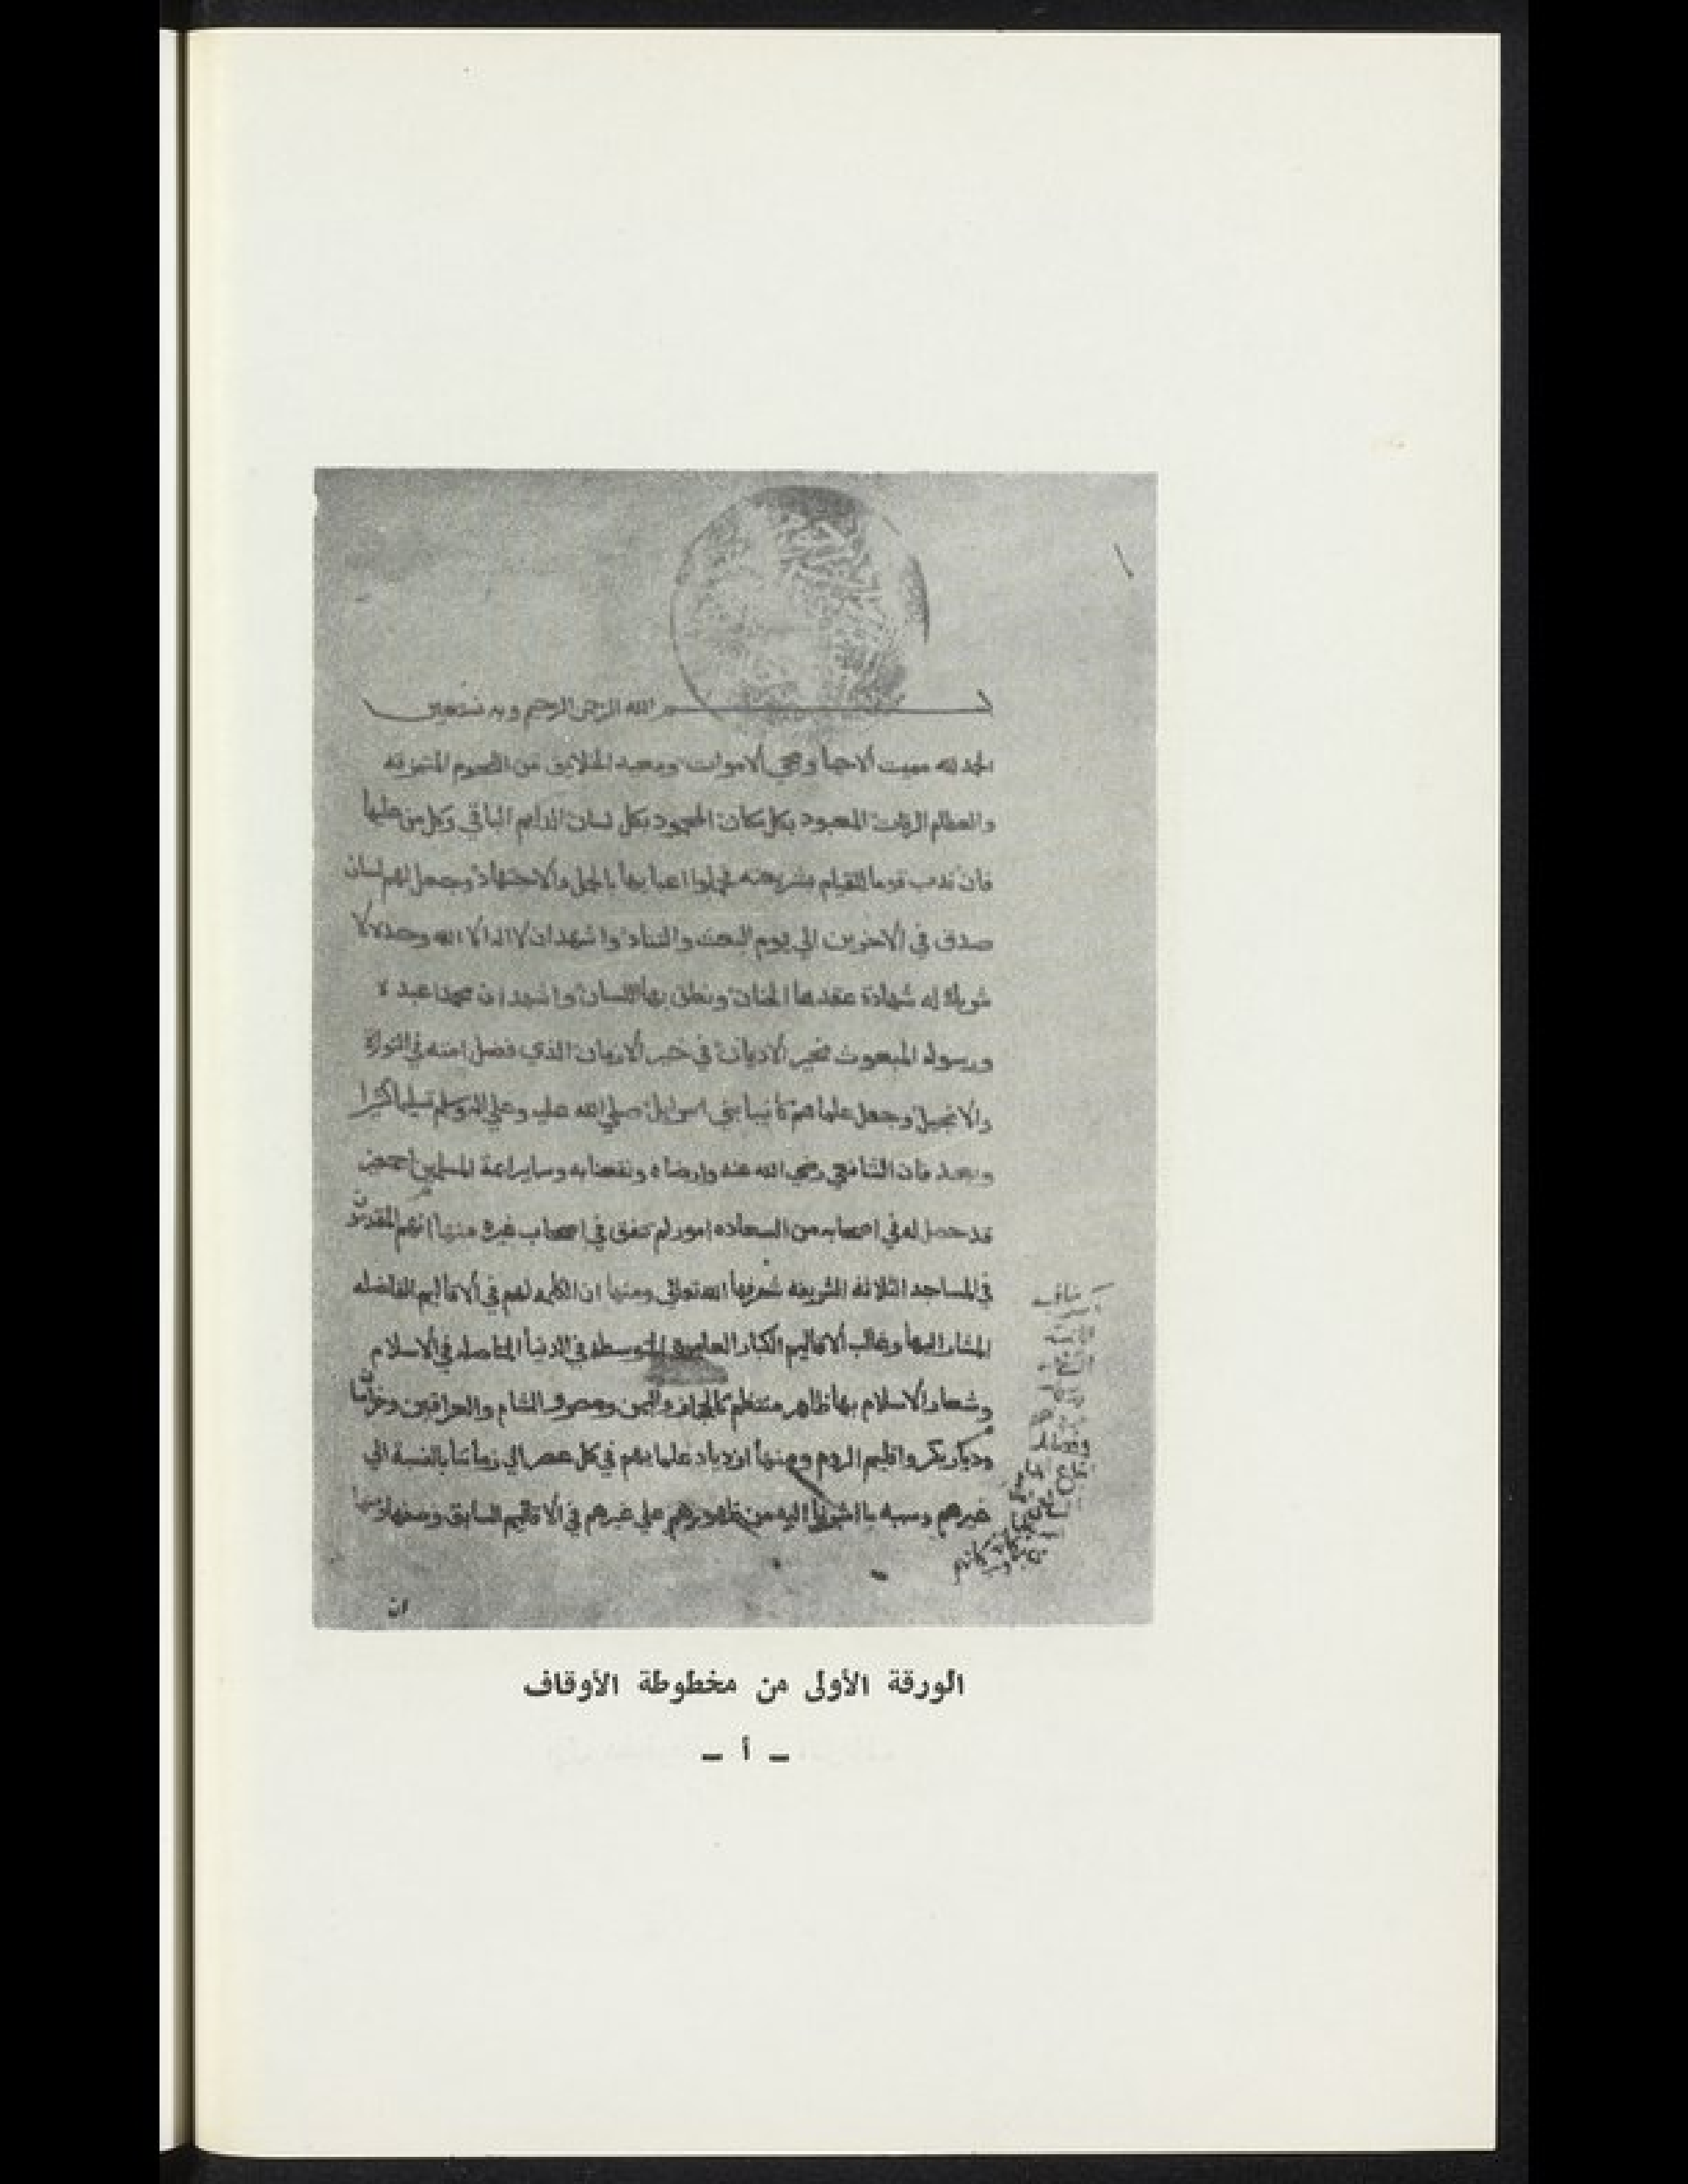 بسم الله الرحمن الرحيم وبه نستعين
الحمد لله مميت الاحيا ومحي الاموات ومعيد الخلايق من اللحوم المتمزقه
والعظام الرفات المعبود بكل مكان المحمود بكل لسان الدايم الباقي وكل من عليها
فان ندب قوما للقيام بشريعته فحملوا اعبايها بالجد والاجتهاد وجعل لهم لسان
صدق في الاخرين الي يوم البعث والتناد واشهد ان لا اله الا الله وحده لا
شريك له شهادة عقدها الجنان ونطق بها اللسان واشهد ان محمدا عبده
ورسوله المبعوث بخير الاديان في خير الازمان الذي فضل امته في التوراة
والانجيل وجعل علماهم كانبيا بني اسرايل صلي الله عليه وعلي اله وسلم تسليما كثيرا
وبعد فان الشافعي رضي الله عنه وارضاه ونفعنا به وساير ايمة المسلمين اجمعين
قد حصل له في اصحابه من السعاده امور لم تتفق في اصحاب غيره منها انهم المقدمون
في المساجد الثلاثه الشريفه شرفها الله تعالي ومنها ان الكلمه لهم في الاقاليم الفاضله
المشار اليها وغالب الاقاليم الكبار العامره المتوسطه في الدنيا المتاصله في الاسلام
وشعار الاسلام بها ظاهر منتظم كالحجاز واليمن ومصر والشام والعراقين وخراسان
وديار بكر واقليم الروم ومنها ازدياد علمايهم في كل عصر الي زماننا بالنسبة الي
غيرهم وسببه ما اشرنا اليه من ظهورهم علي غيرهم في الاقاليم السابق وصفها ومنها
ان
الورقة الأولى من مخطوطة الأوقاف
ـ أ ـ